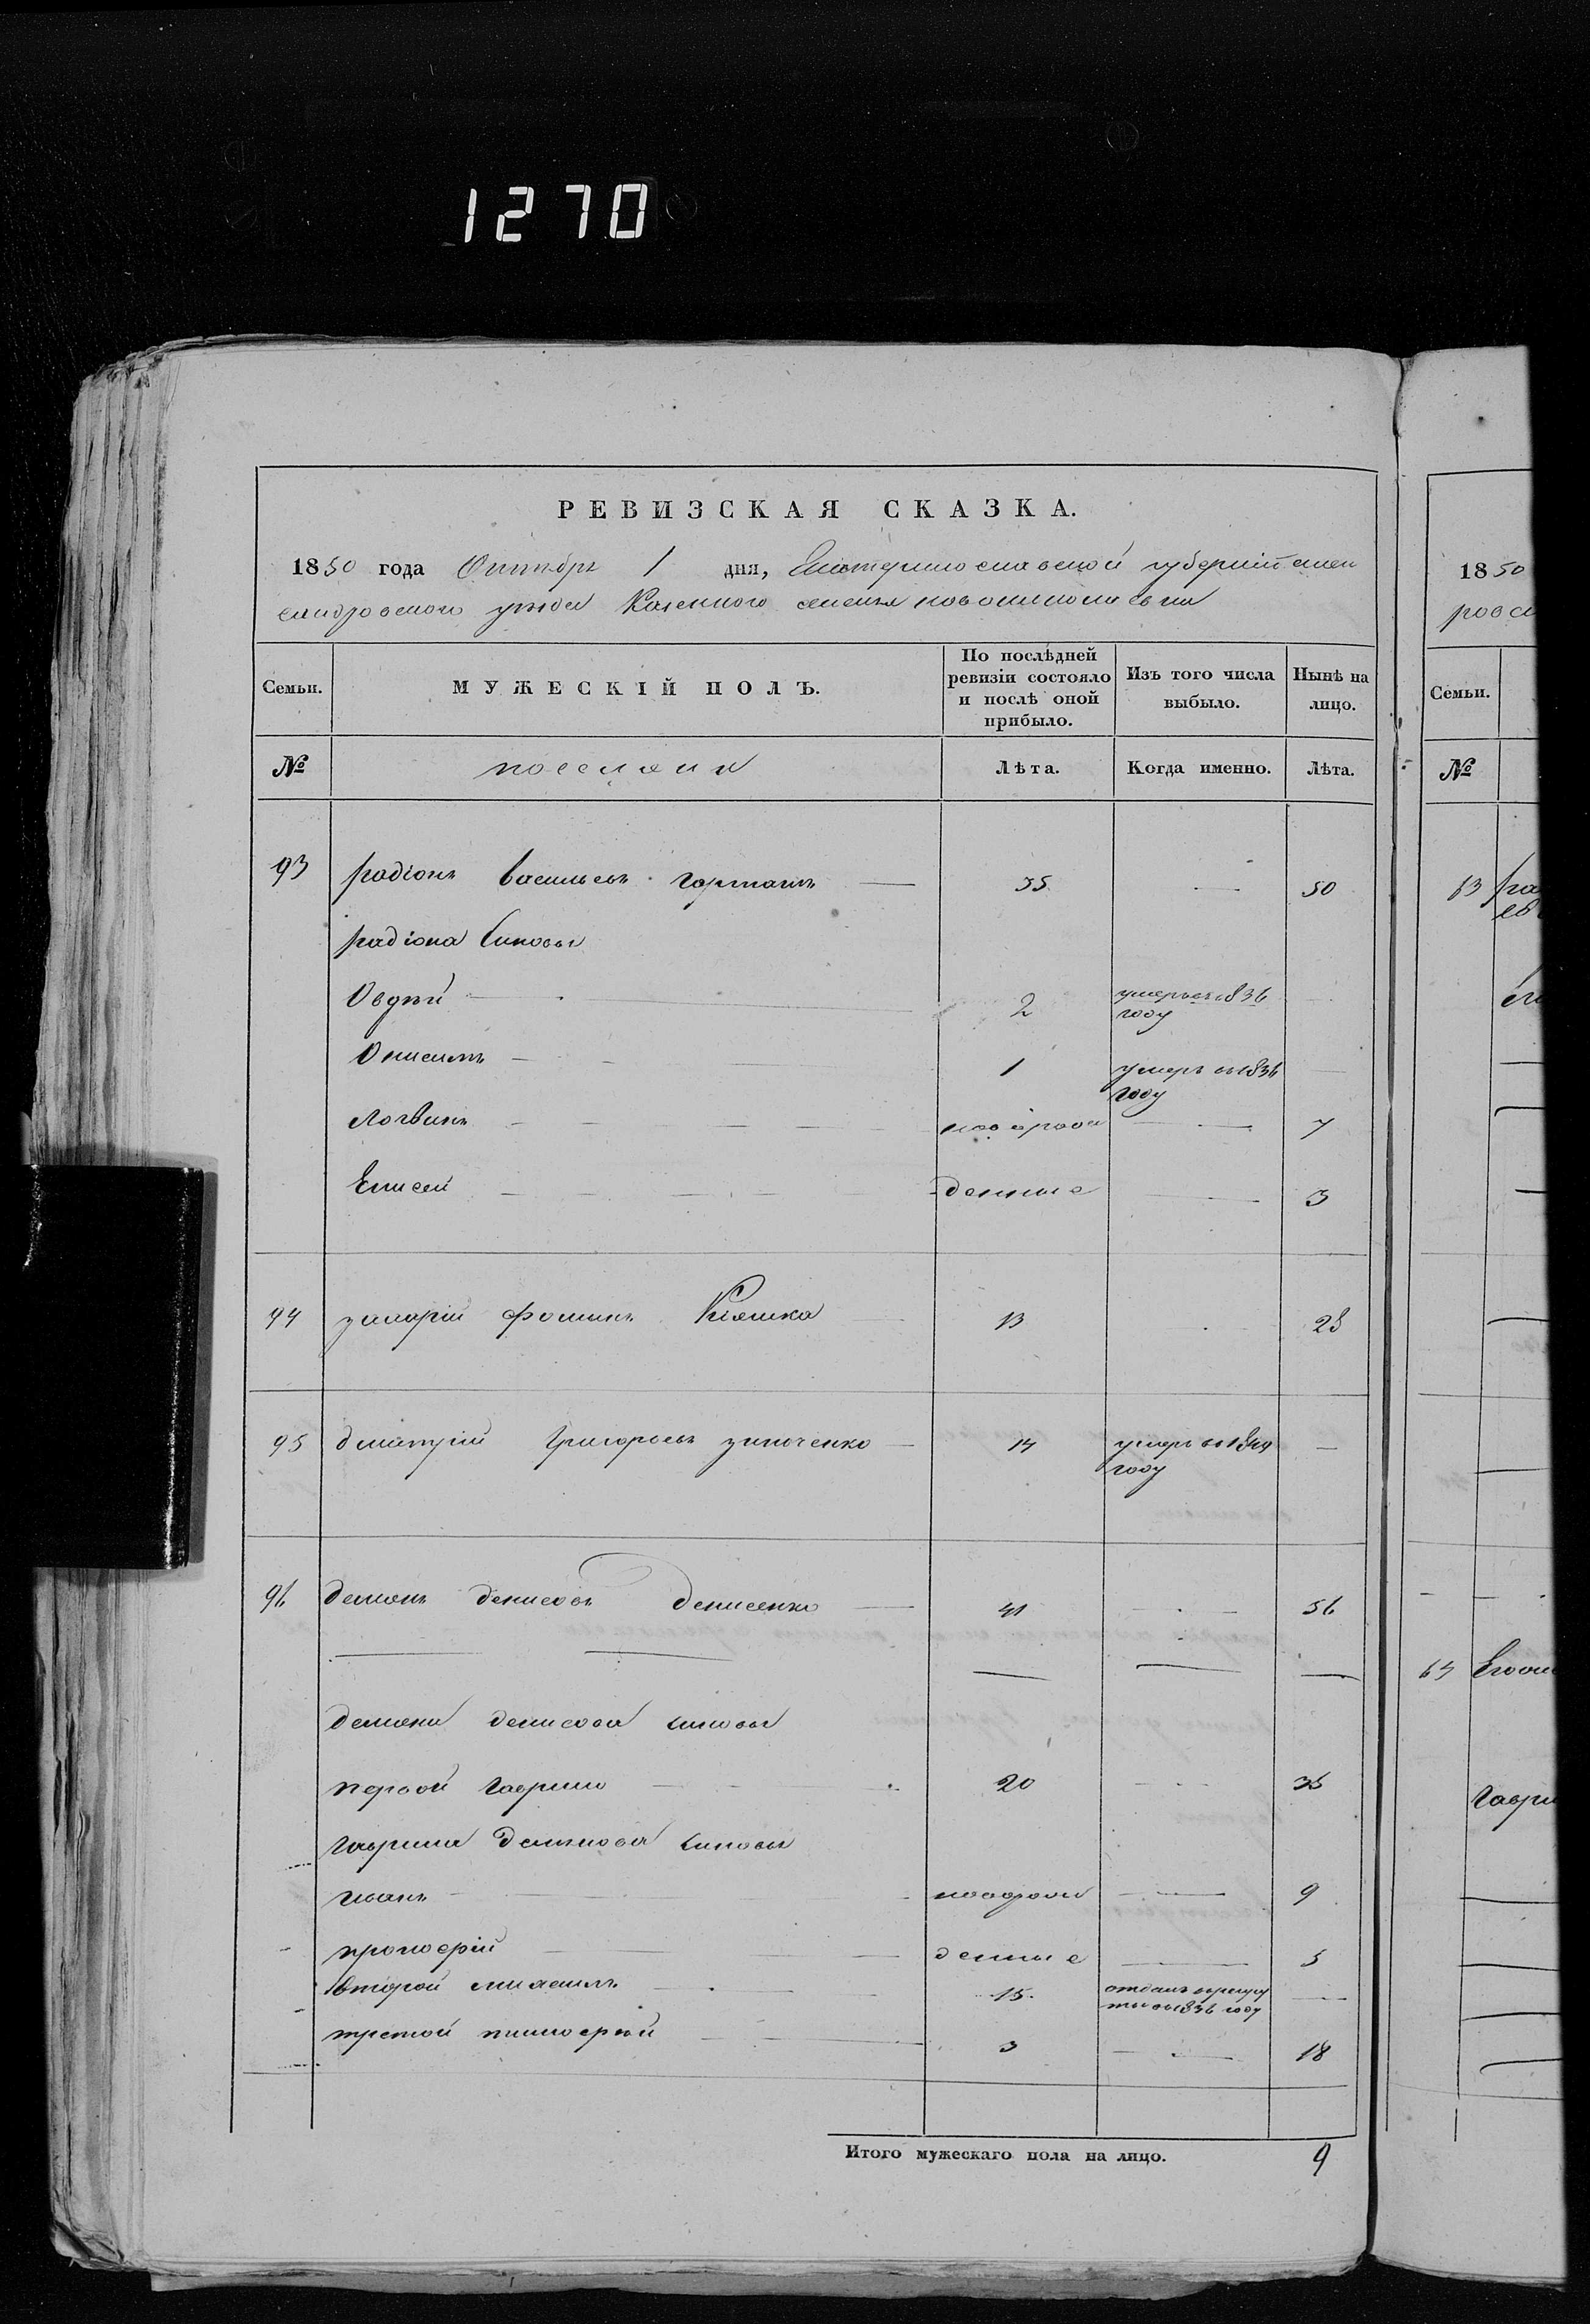 1270
РЕВИЗСКАЯ СКАЗКА.
1850 года Октября 1 дня, Екатеринославской губернии алек
сандровского уезда Казенного селения новониколаевки
Семьи. МУЖЕСКІЙ ПОЛЪ. По послѣдней ревизіи состояло и послѣ оной прибыло. Изъ того числа выбыло. Нынѣ на лицо.
№ поселяня Лѣта. Когда именно. Лѣта.
93 радіонъ васильевъ 35 50
радіона синовья
Овдѣй 2 умеръ въ 1836 году
Онисимъ 1 умеръ въ 1836 году
Логвинъ новорож 7
Елисей денные 3
94 захарій фоминъ Кіяшко 13 28
95 дмитрій Григорьевъ зинченко 14 умеръ въ 1849 году
96 демянъ денисовъ денисенко 41 56
демяна денисова синовья
первой гаврило 20 35
гаврила демянова синовья
иванъ новорож 9
прокофій денные 5
второй максимъ 15 отданъ в рекру
ты въ 1836 году
третой тимофѣй 3 18
Итого мужескаго пола на лицо. 9
1850
ровс
Семьи.
№
63
64
Гаври